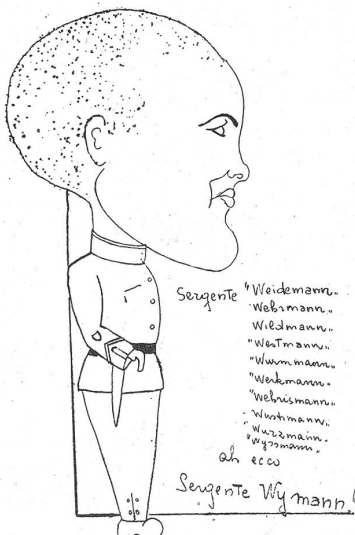 Sergente "Weidemann"
"Webrmann"
Wildmann"
"Westmann"
"Wurmmann"
"Werkmann"
"Webrismann"
Wustimann"
"Wurzmain"
"Wyssmann"
ah ecco
Sergente Wymann!